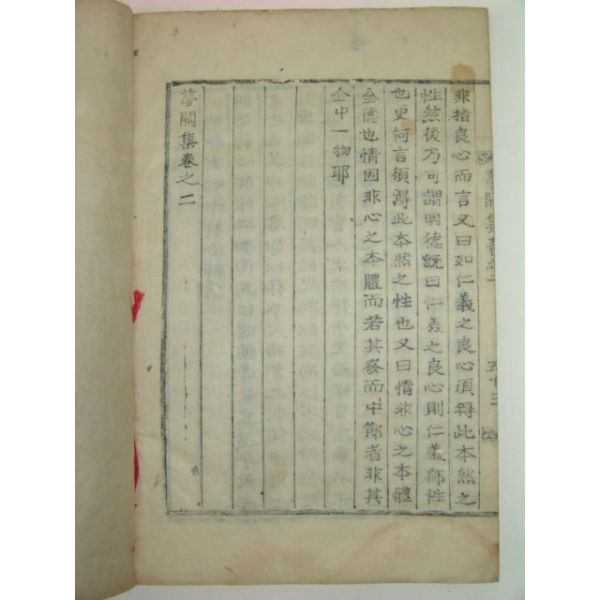 夢關集卷之二
五十三
非指良心而言又曰如仁義之良心須得此本然之
性然後乃可謂明德旣曰仁義之良心則仁義卽性
也更何言須得此本然之性也又曰情非心之本體
全德也情固非心之本體而若其發而中節者非其
全中一物耶
夢關集卷之二